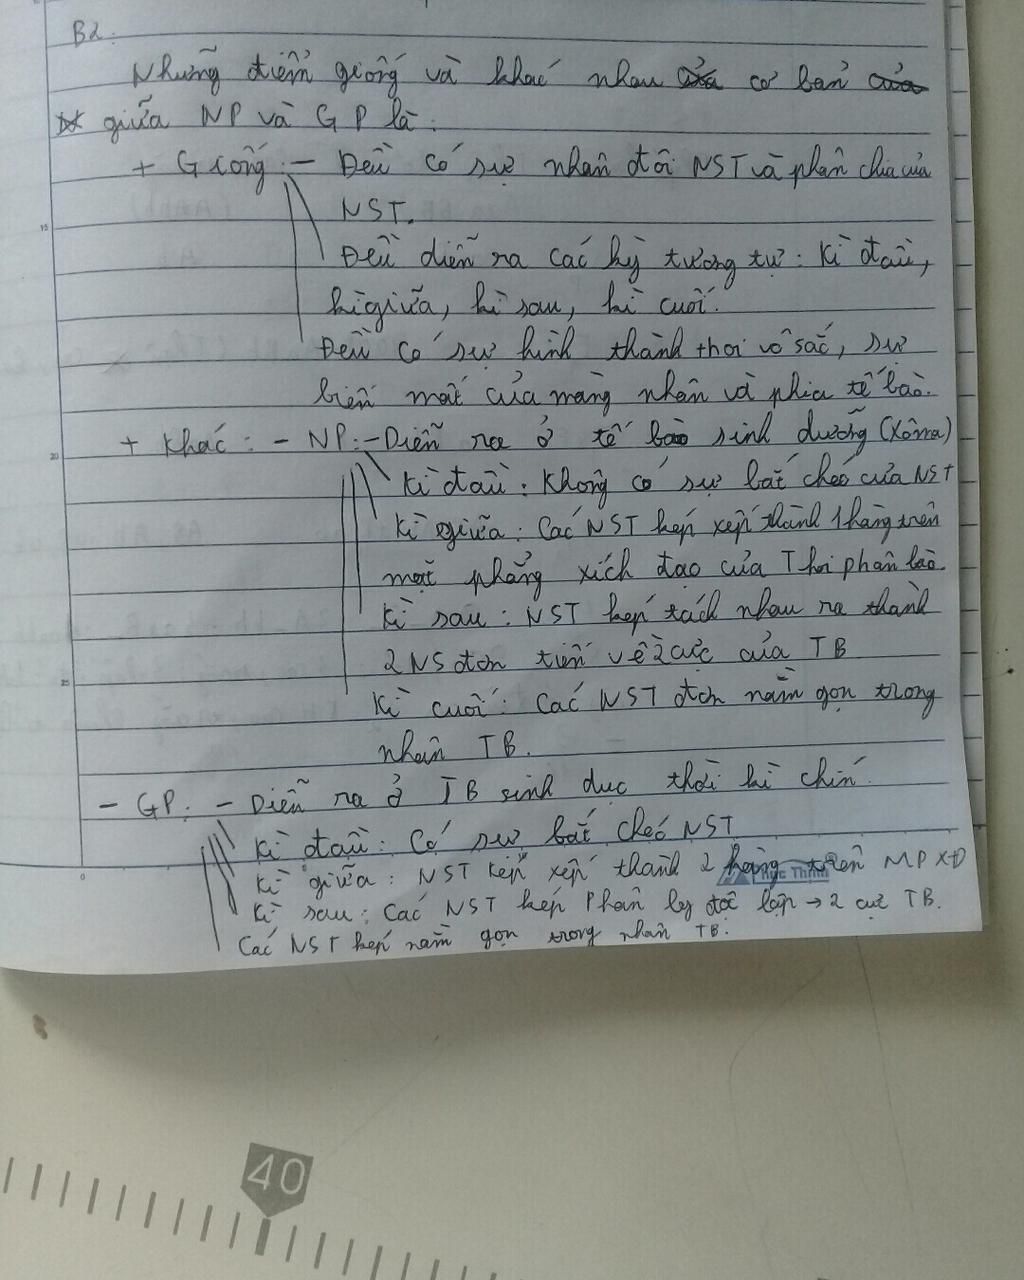 B2:
Những điểm giống và khác nhau của cơ bản của
giữa NP và GP là:
+ Giống: - Đều có sự nhân đôi NST và phân chia của
NST.
Đều diễn ra các kỳ tương tự: Kì đầu,
kì giữa, kì sau, kì cuối.
Đều có sự hình thành thoi vô sắc, sự
biến mất của màng nhân và phia tế bào.
+ Khác: - NP: - Diễn ra ở tế bào sinh dưỡng (Xôma)
Kì đầu: Không có sự bắt chéo của NST
Kì giữa: Các NST kép xếp thành 1 hàng trên
mặt phẳng xích đạo của Thoi phân bào.
Kì sau: NST kép tách nhau ra thành
2 NS đơn tiến về 2 cực của TB
Kì cuối: Các NST đơn nằm gọn trong
nhân TB.
- GP: - Diễn ra ở TB sinh dục thời kì chín.
Kì đầu: Có sự bắt chéo NST
Kì giữa: NST kép xếp thành 2 hàng trên MPXĐ
Kì sau: Các NST kép Phân ly độc lập → 2 cực TB.
Các NST kép nằm gọn trong nhân TB.
40